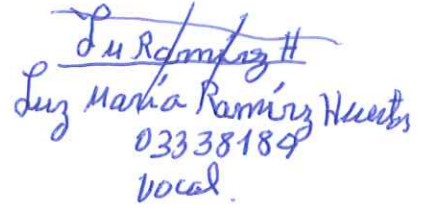 Lu Ramírz H
Luz María Ramírz Huerts
03338184
Vocal.